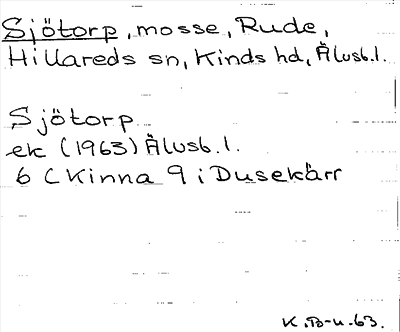 Sjötorp, mosse, Rude,
Hillareds sn, Kinds hd, Älvsb.l.
Sjötorp
ek (1963) Älvsb.l.
6 C Kinna 9 i Dusekärr
K.B-u.63.